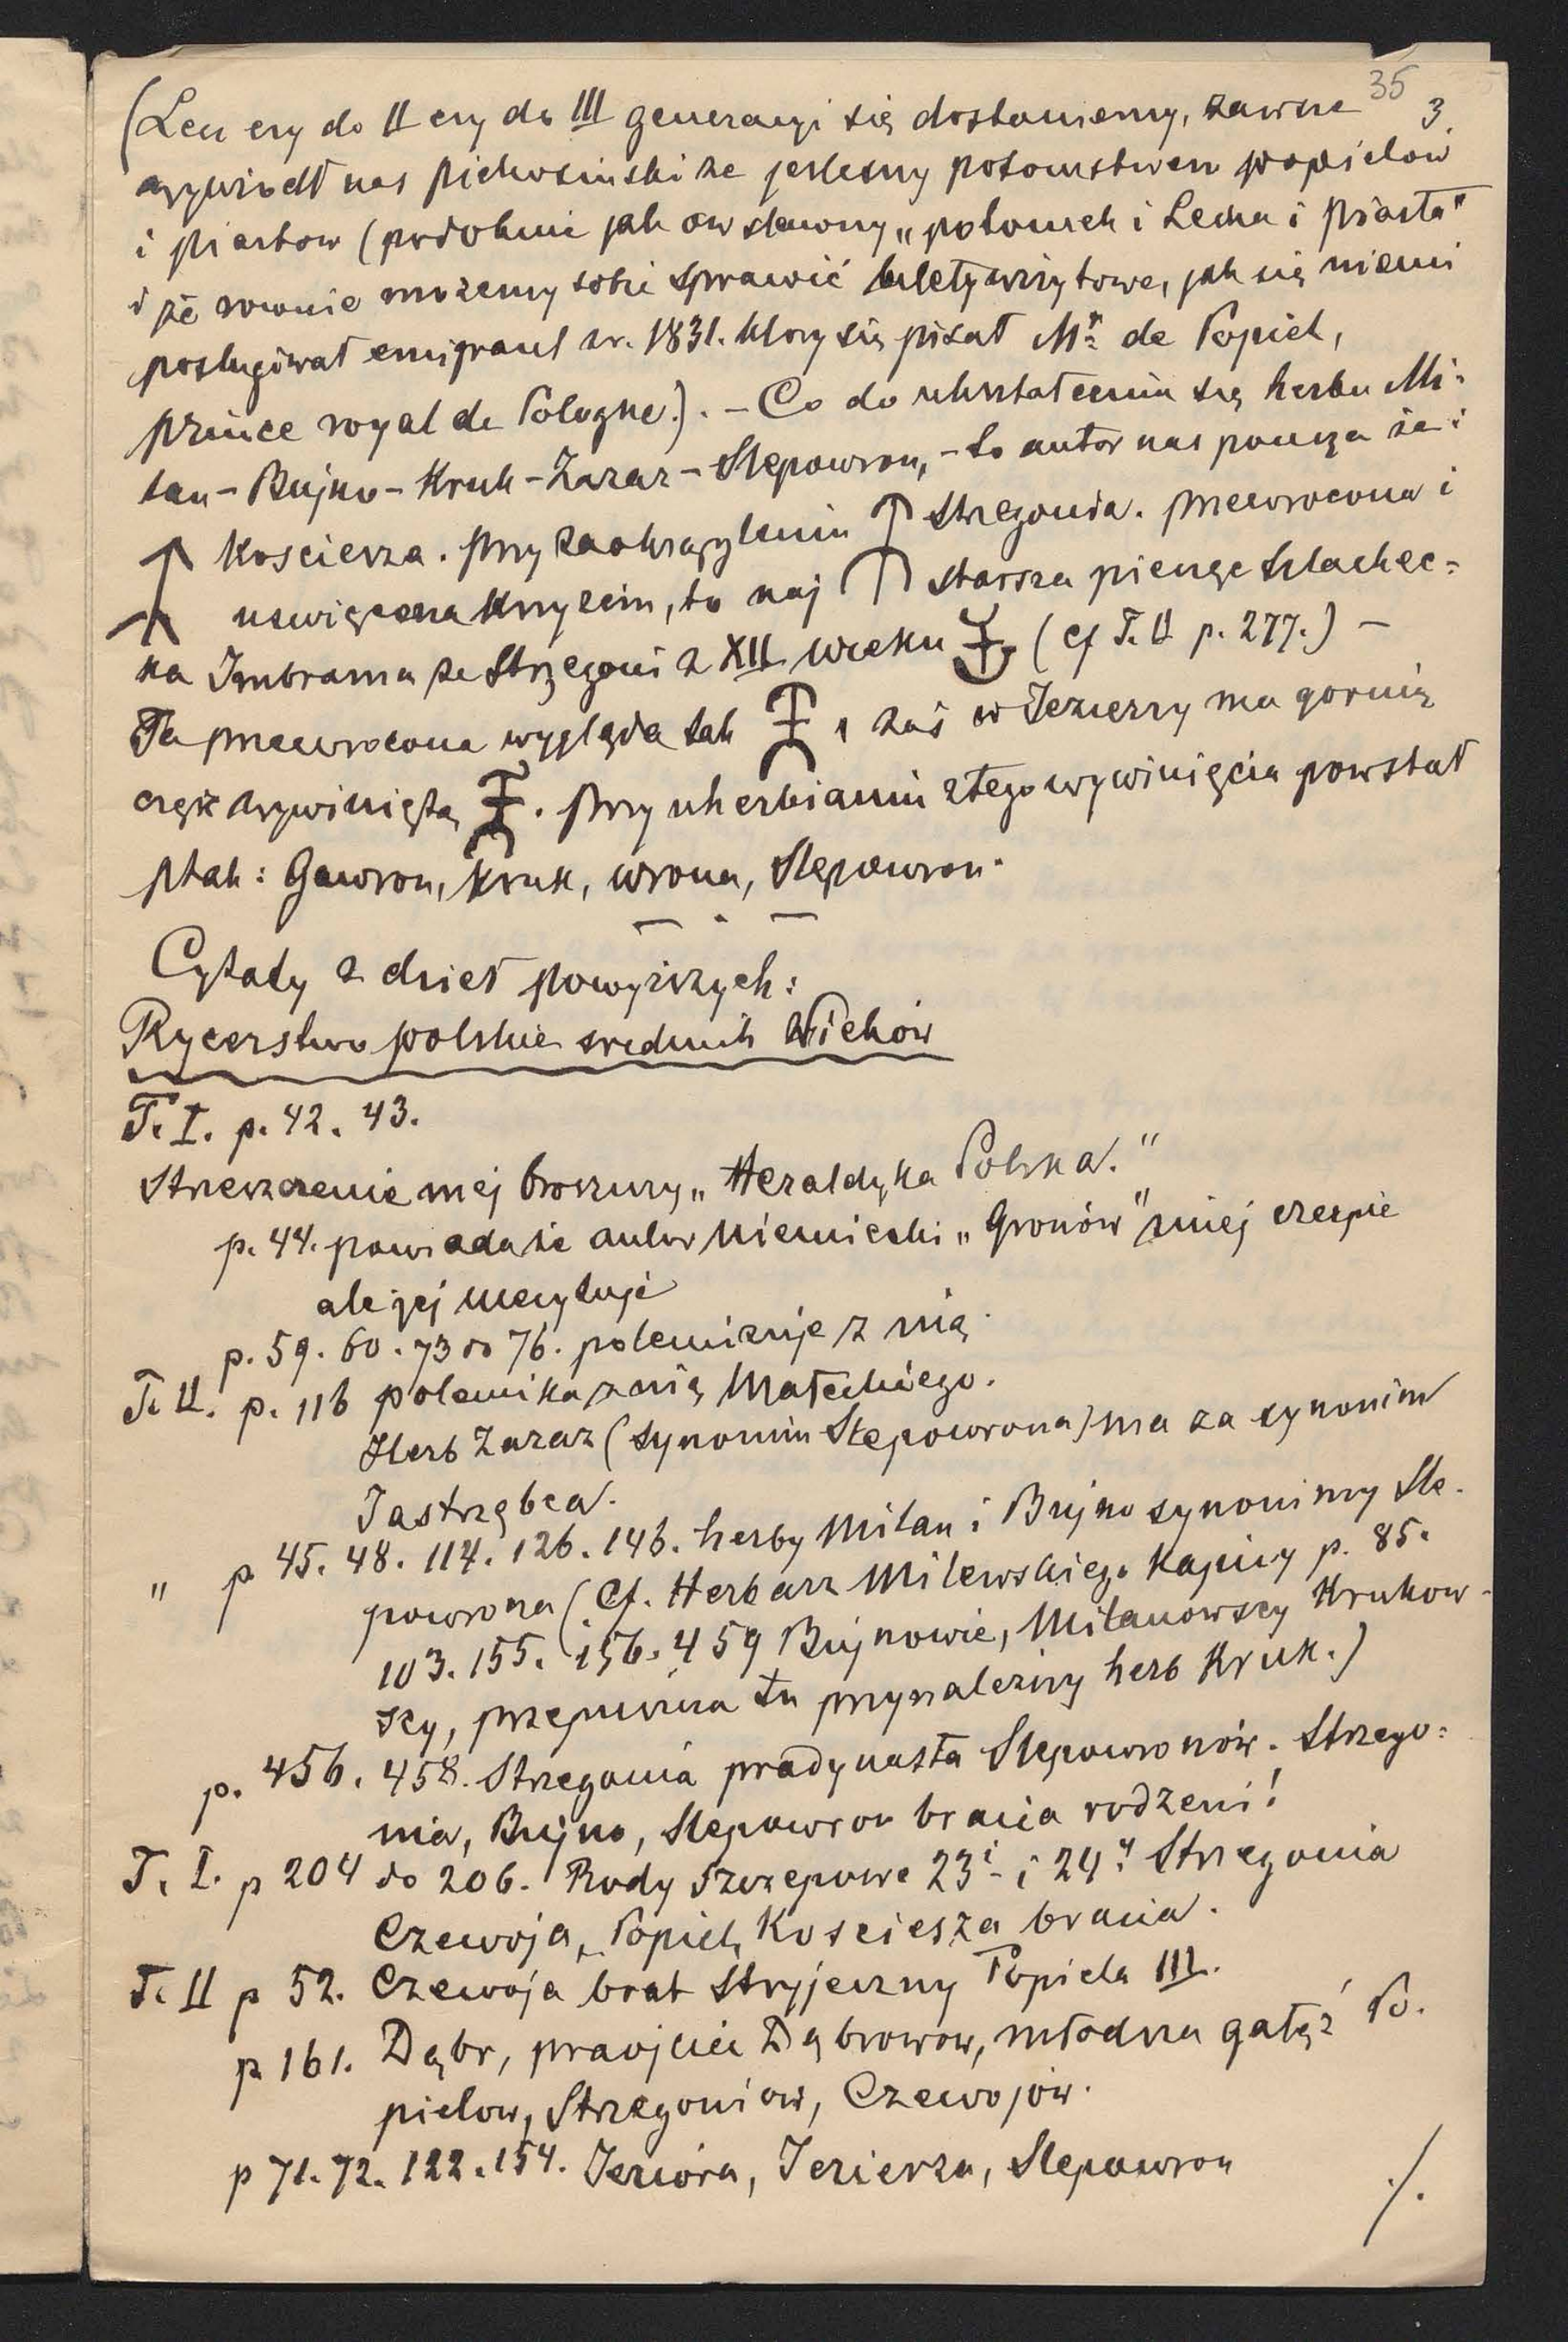 35
3.
(Lecz czy do II czy do III generacyi się dostaniemy, zawsze
wywiódł nas Piekosiński że jesteśmy potomstwem Popielow
i Piastow (podobnie jak ow sławny „potomek i Lecha i Piasta"
i że rownie możemy sobie sprawić bilety wizytowe, jak się niemi
posługiwał emigrant z r. 1831. ktory się pisał Mr de Popiel,
prince royal de Pologne.). – Co do ukształcenia się herbu Mi-
lan – Bujno – Kruk – Zaraz – Slepowron, – to autor nas poucza że:
Kościerza. przy zaokrągleniu Strzegonia. przewrocona i
uswięcona krzyżem, to naj starsza pieczęc szlachec=
ka Imbrama ze Strzegoni z XII wieku (cf T. II p. 277.) –
Ta przewrocona wygląda tak , zaś w Jezierzy ma gornią
część wywiniętą . Przy uherbianiu z tego wywinięcia powstał
ptak: Gawron, Kruk, Wrona, Slepowron.
– . –
Cytaty z dzieł powyższych:
Rycerstwo polskie srednich Wieków
T. I. p. 42. 43.
Streszczenie mej broszury „Heraldyka Polska."
p. 44. powiada że autor Niemiecki „Gronów" z niej czerpie
ale jej niecytuje
p. 59. 60. 73 do 76. polemizuje z nią.
T. II. p. 116 polemika z nią Małeckiego.
Herb Zaraz (synonim Slepowrona) ma za synonim
Jastrzębca.
" p 45. 48. 114. 126. 146. herby Milan i Bujno synonimy Sle-
powrona (Cf. Herbarz Milewskiego Kapicy p. 85.
103. 155. 156. 459 Bujnowie, Milanowscy Krukow-
scy, przepuszcza tu przynależny herb Kruk.)
p. 456. 458. Strzegonia pradynasta Slepowronów. Strzego=
nia, Bujno, Slepowron bracia rodzeni!
T. I. p 204 do 206. Rody szczepowe 23i i 24y Strzegonia
Czewoja, Popiel, Kosciesza bracia.
T. II p 52. Czewoja brat stryjeczny Popiela III.
p 161. Dąbr, praojciec Dąbrowow, młodsza gałąź Po-
pielow, Strzegoniow, Czewojów.
p 71. 72. 122. 154. Jeziora, Jezierza, Slepowron
./.